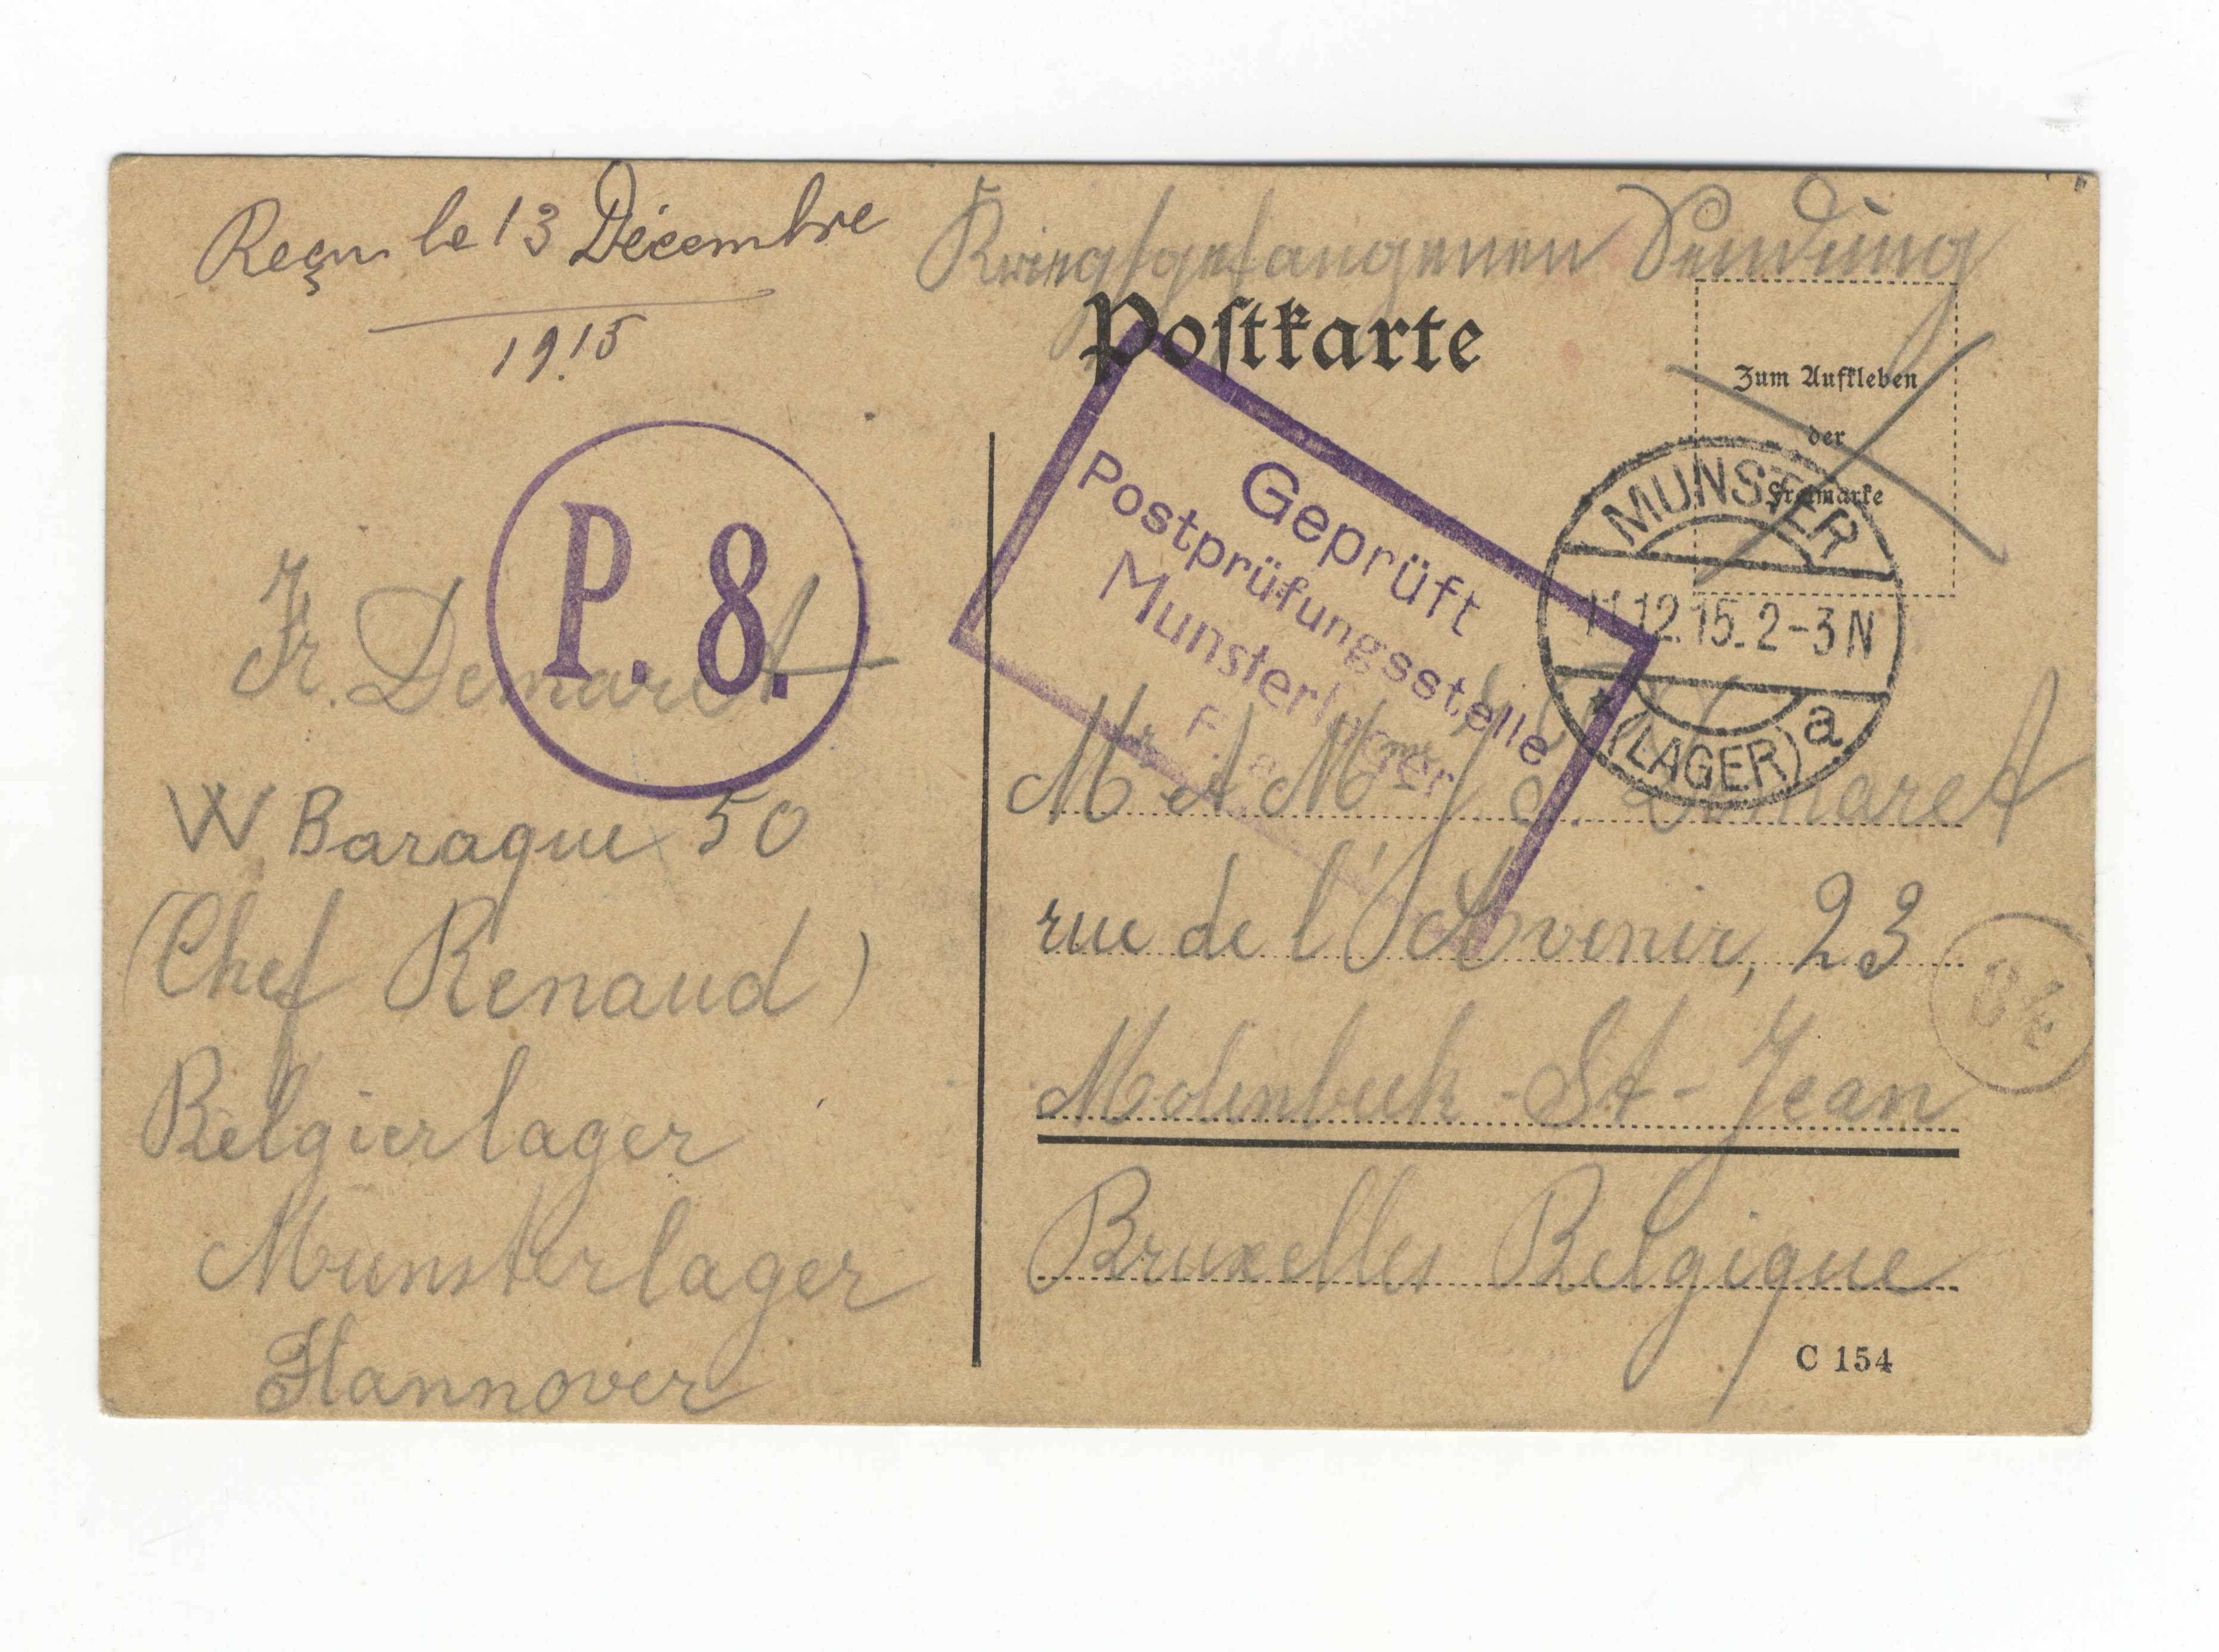 Reçu le 13 Décembre
1915
Kriegsgefangenen Sendung
Postkarte
Zum Aufkleben
der
Freimarke
P. 8.
Geprüft
Postprüfungsstelle
Munsterlager
F. a.
MUNSTER
11.12.15. 2-3N
* (LAGER) a
Fr. Demaret
W Baraque 50
(Chef Renaud)
Belgierlager
Munsterlager
Hannover
Mr et Mme J. Demaret
rue de l'Avenir, 23
Molenbeek-St-Jean
Bruxelles Belgique
C 154